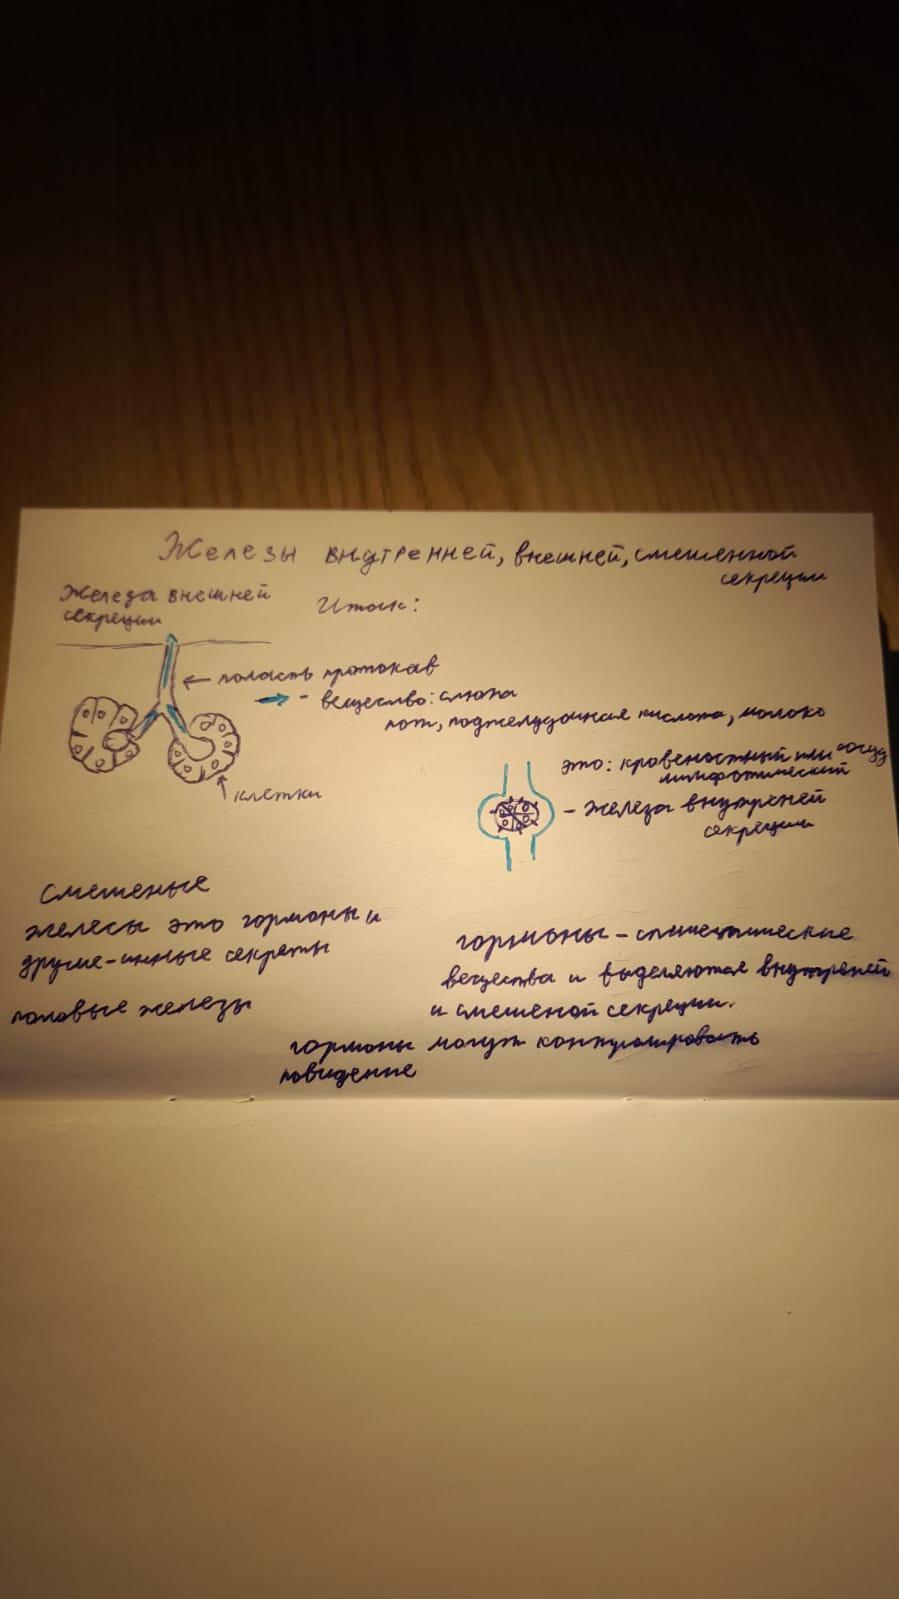 Железы внутренней, внешней, смешенной
секреции
Железа внешней
секреции
Итак:
полость протоков
- вещество: слюна
пот, поджелудочная кислота, молоко
клетки
это: кровеностный или сосуд
лимфотический
- железа внутреней
секреции
смешеные
железы это гормоны и
другие-инные секреты
половые железы
гормоны -
вещества и выделяются внутреней
и смешеной секреции.
гормоны могут контролировать
повидение